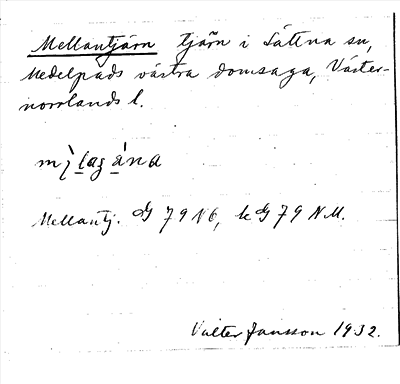 Mellantjärn tjärn i Sättna sn,
Medelpads västra domsaga, Väster-
norrlands l.
Mellantj. G 79 NO, k G 79 N.M.
Valter Jansson 1932.